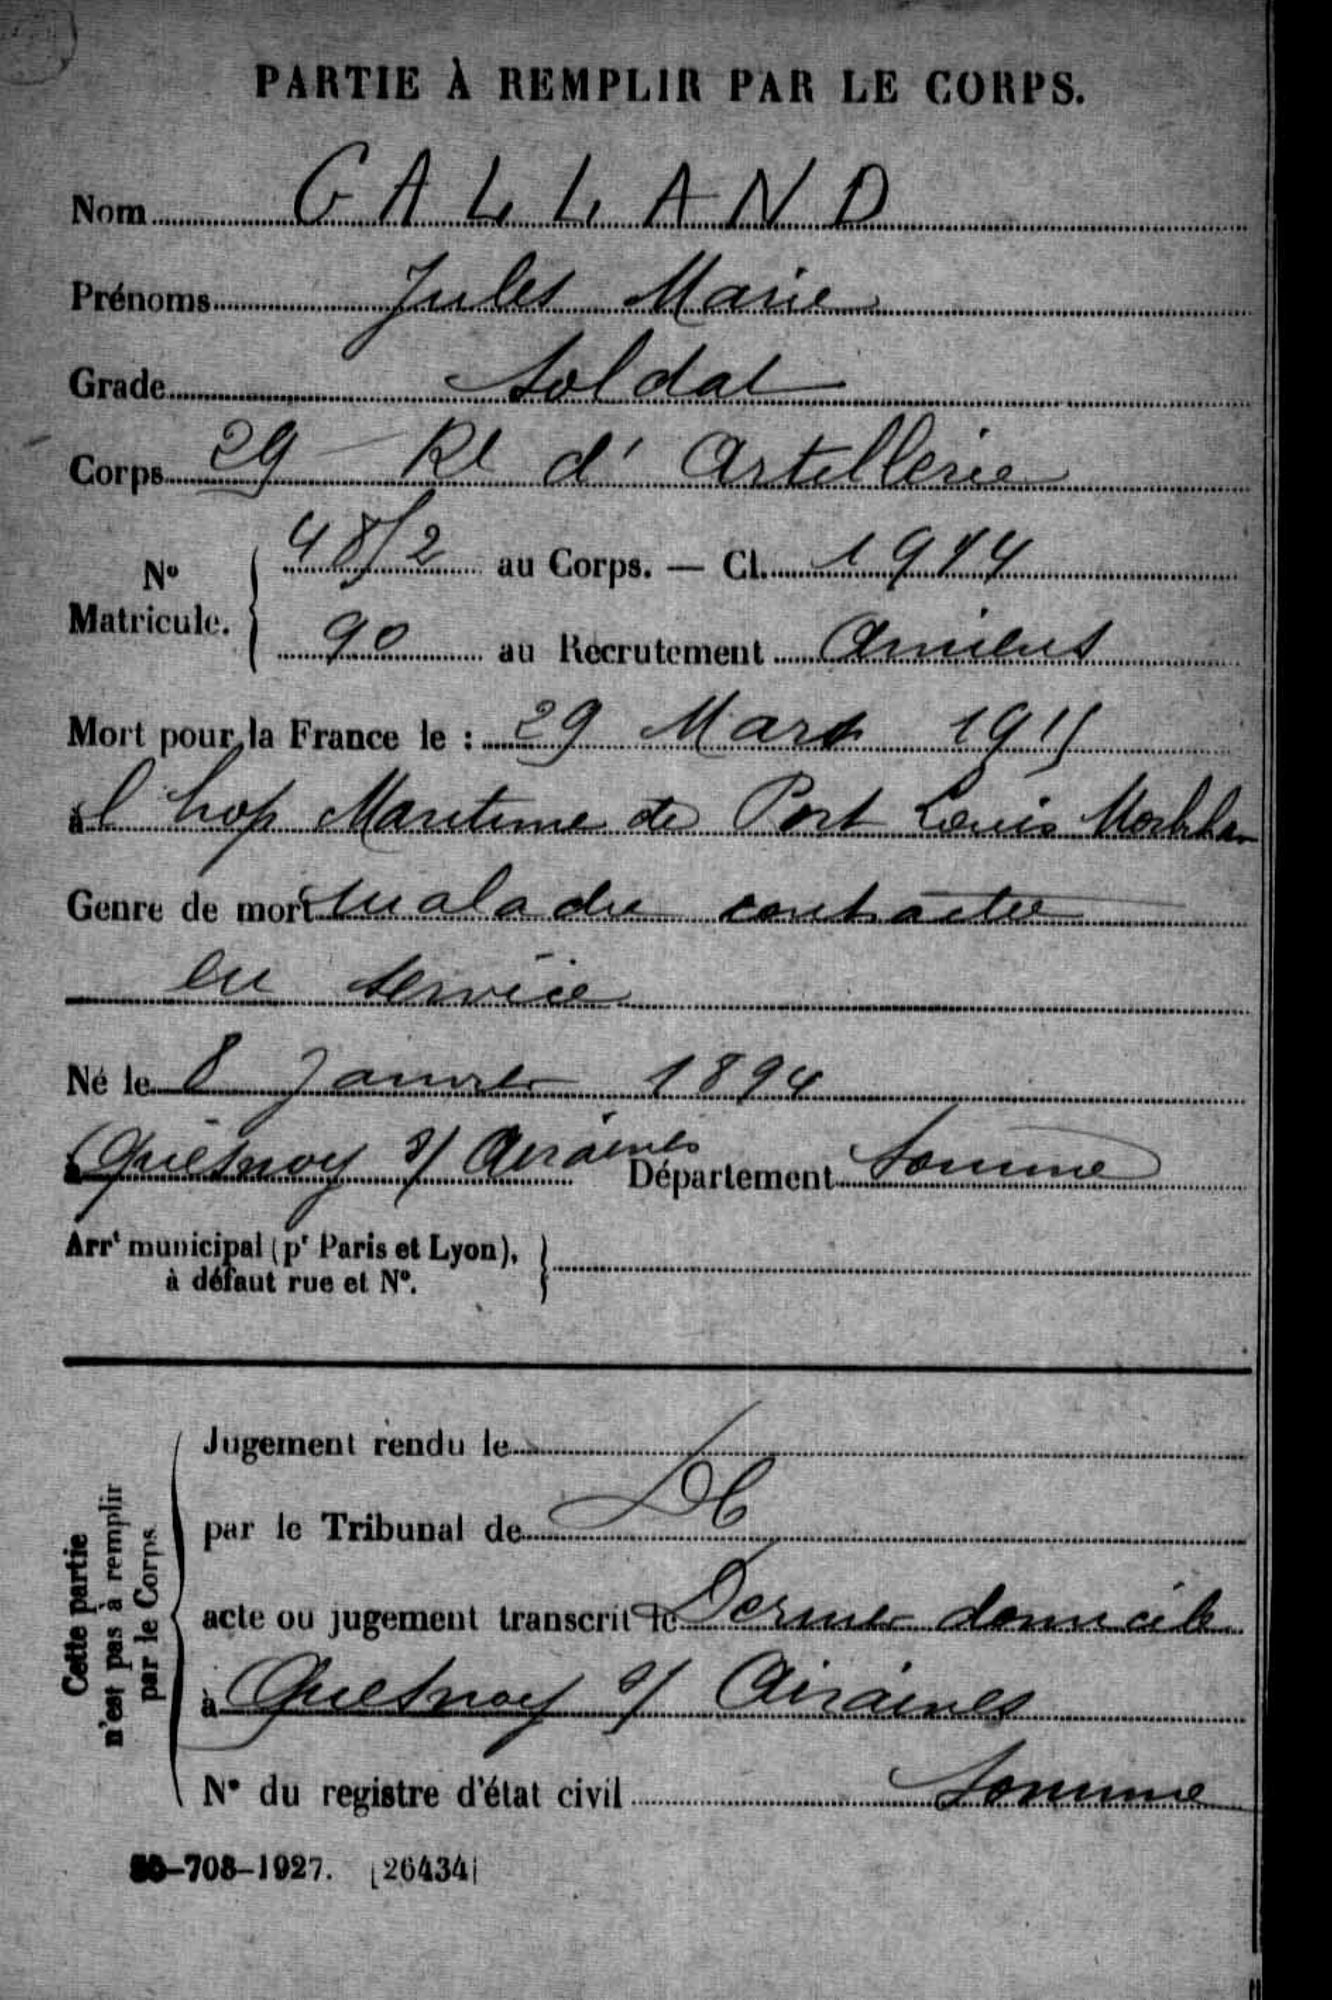 PARTIE À REMPLIR PAR LE CORPS.
Nom GALLAND
Prénoms Jules Marie
Grade Soldat
Corps 29 Rt d' Artillerie
N° Matricule. 48/2 au Corps. — Cl. 1914
90 au Recrutement Amiens
Mort pour la France le : 29 Mars 1915
à l hop Maritime de Port Louis Morbihan
Genre de mort maladie contractée
en service
Né le 8 Janvier 1894
à Quesnoy s/ Airaines Département Somme
Arrt municipal (pr Paris et Lyon),
à défaut rue et N°.
Cette partie
n'est pas à remplir
par le Corps.
Jugement rendu le
par le Tribunal de
acte ou jugement transcrit le Dernier domicile
à Quesnoy s/ Airaines
N° du registre d'état civil Somme
-708-1927. [26434]